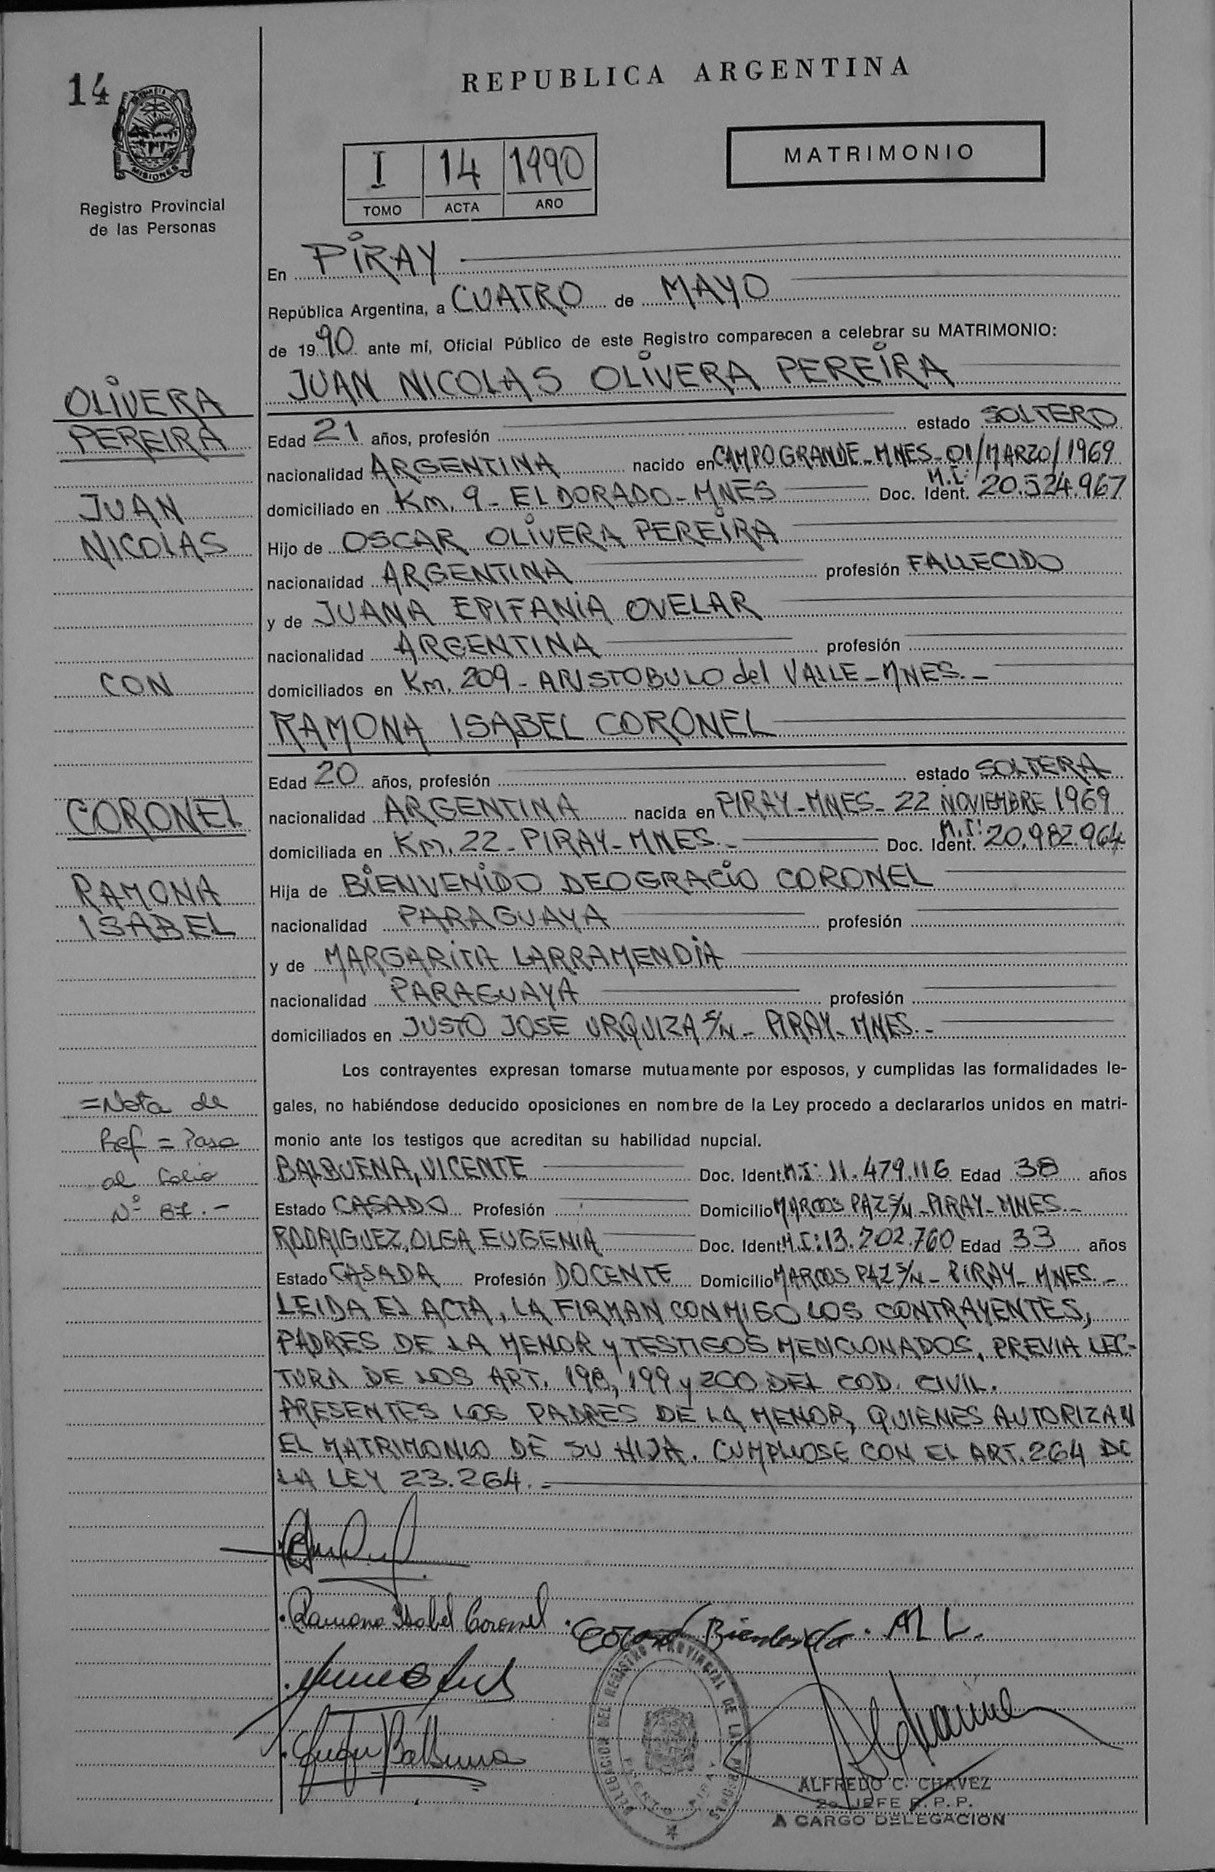 14
REPUBLICA ARGENTINA
PROVINCIA
MISIONES
Registro Provincial
de las Personas
I 14 1990
TOMO ACTA AÑO
MATRIMONIO
En PIRAY
República Argentina, a CUATRO de MAYO
de 1990 ante mí, Oficial Público de este Registro comparecen a celebrar su MATRIMONIO:
JUAN NICOLAS OLIVERA PEREIRA
OLIVERA
PEREIRA
JUAN
NICOLAS
CON
CORONEL
RAMONA
ISABEL
=Nota de
Ref = Pasa
al folio
Nº 87.-
Edad 21 años, profesión estado SOLTERO
nacionalidad ARGENTINA nacido en CAMPO GRANDE-MNES-01/MARZO/1969
domiciliado en Km. 9 - ELDORADO - MNES Doc. Ident. M.I: 20.524.967
Hijo de OSCAR OLIVERA PEREIRA
nacionalidad ARGENTINA profesión FALLECIDO
y de JUANA EPIFANIA OVELAR
nacionalidad ARGENTINA profesión
domiciliados en Km. 209 - ARISTOBULO del VALLE - MNES.-
RAMONA ISABEL CORONEL
Edad 20 años, profesión estado SOLTERA
nacionalidad ARGENTINA nacida en PIRAY-MNES- 22 NOVIEMBRE 1969
domiciliada en Km. 22 - PIRAY - MNES.- Doc. Ident. M.I: 20.982.964
Hija de BIENVENIDO DEOGRACIO CORONEL
nacionalidad PARAGUAYA profesión
y de MARGARITA LARRAMENDIA
nacionalidad PARAGUAYA profesión
domiciliados en JUSTO JOSE URQUIZA S/N - PIRAY - MNES.-
Los contrayentes expresan tomarse mutuamente por esposos, y cumplidas las formalidades le-
gales, no habiéndose deducido oposiciones en nombre de la Ley procedo a declararlos unidos en matri-
monio ante los testigos que acreditan su habilidad nupcial.
BALBUENA, VICENTE Doc. Ident. M.I: 11.479.116 Edad 38 años
Estado CASADO Profesión Domicilio MARCOS PAZ S/N - PIRAY - MNES.-
RODRIGUEZ, OLGA EUGENIA Doc. Ident. M.I: 13.202.760 Edad 33 años
Estado CASADA Profesión DOCENTE Domicilio MARCOS PAZ S/N - PIRAY - MNES.-
LEIDA EL ACTA, LA FIRMAN CONMIGO LOS CONTRAYENTES,
PADRES DE LA MENOR Y TESTIGOS MENCIONADOS, PREVIA LEC-
TURA DE LOS ART. 198, 199 y 200 DEL COD. CIVIL.
PRESENTES LOS PADRES DE LA MENOR, QUIENES AUTORIZAN
EL MATRIMONIO DE SU HIJA. CUMPLIOSE CON EL ART. 264 DE
LA LEY 23.264.-
Ramona Isabel Coronel
Coronel Bienvenido. M L.
Balbuena
DELEGACION DEL REGISTRO PROVINCIAL DE LAS PERSONAS
PUERTO PIRAY
ALFREDO C. CHAVEZ
2o JEFE R. P. P.
A CARGO DELEGACION